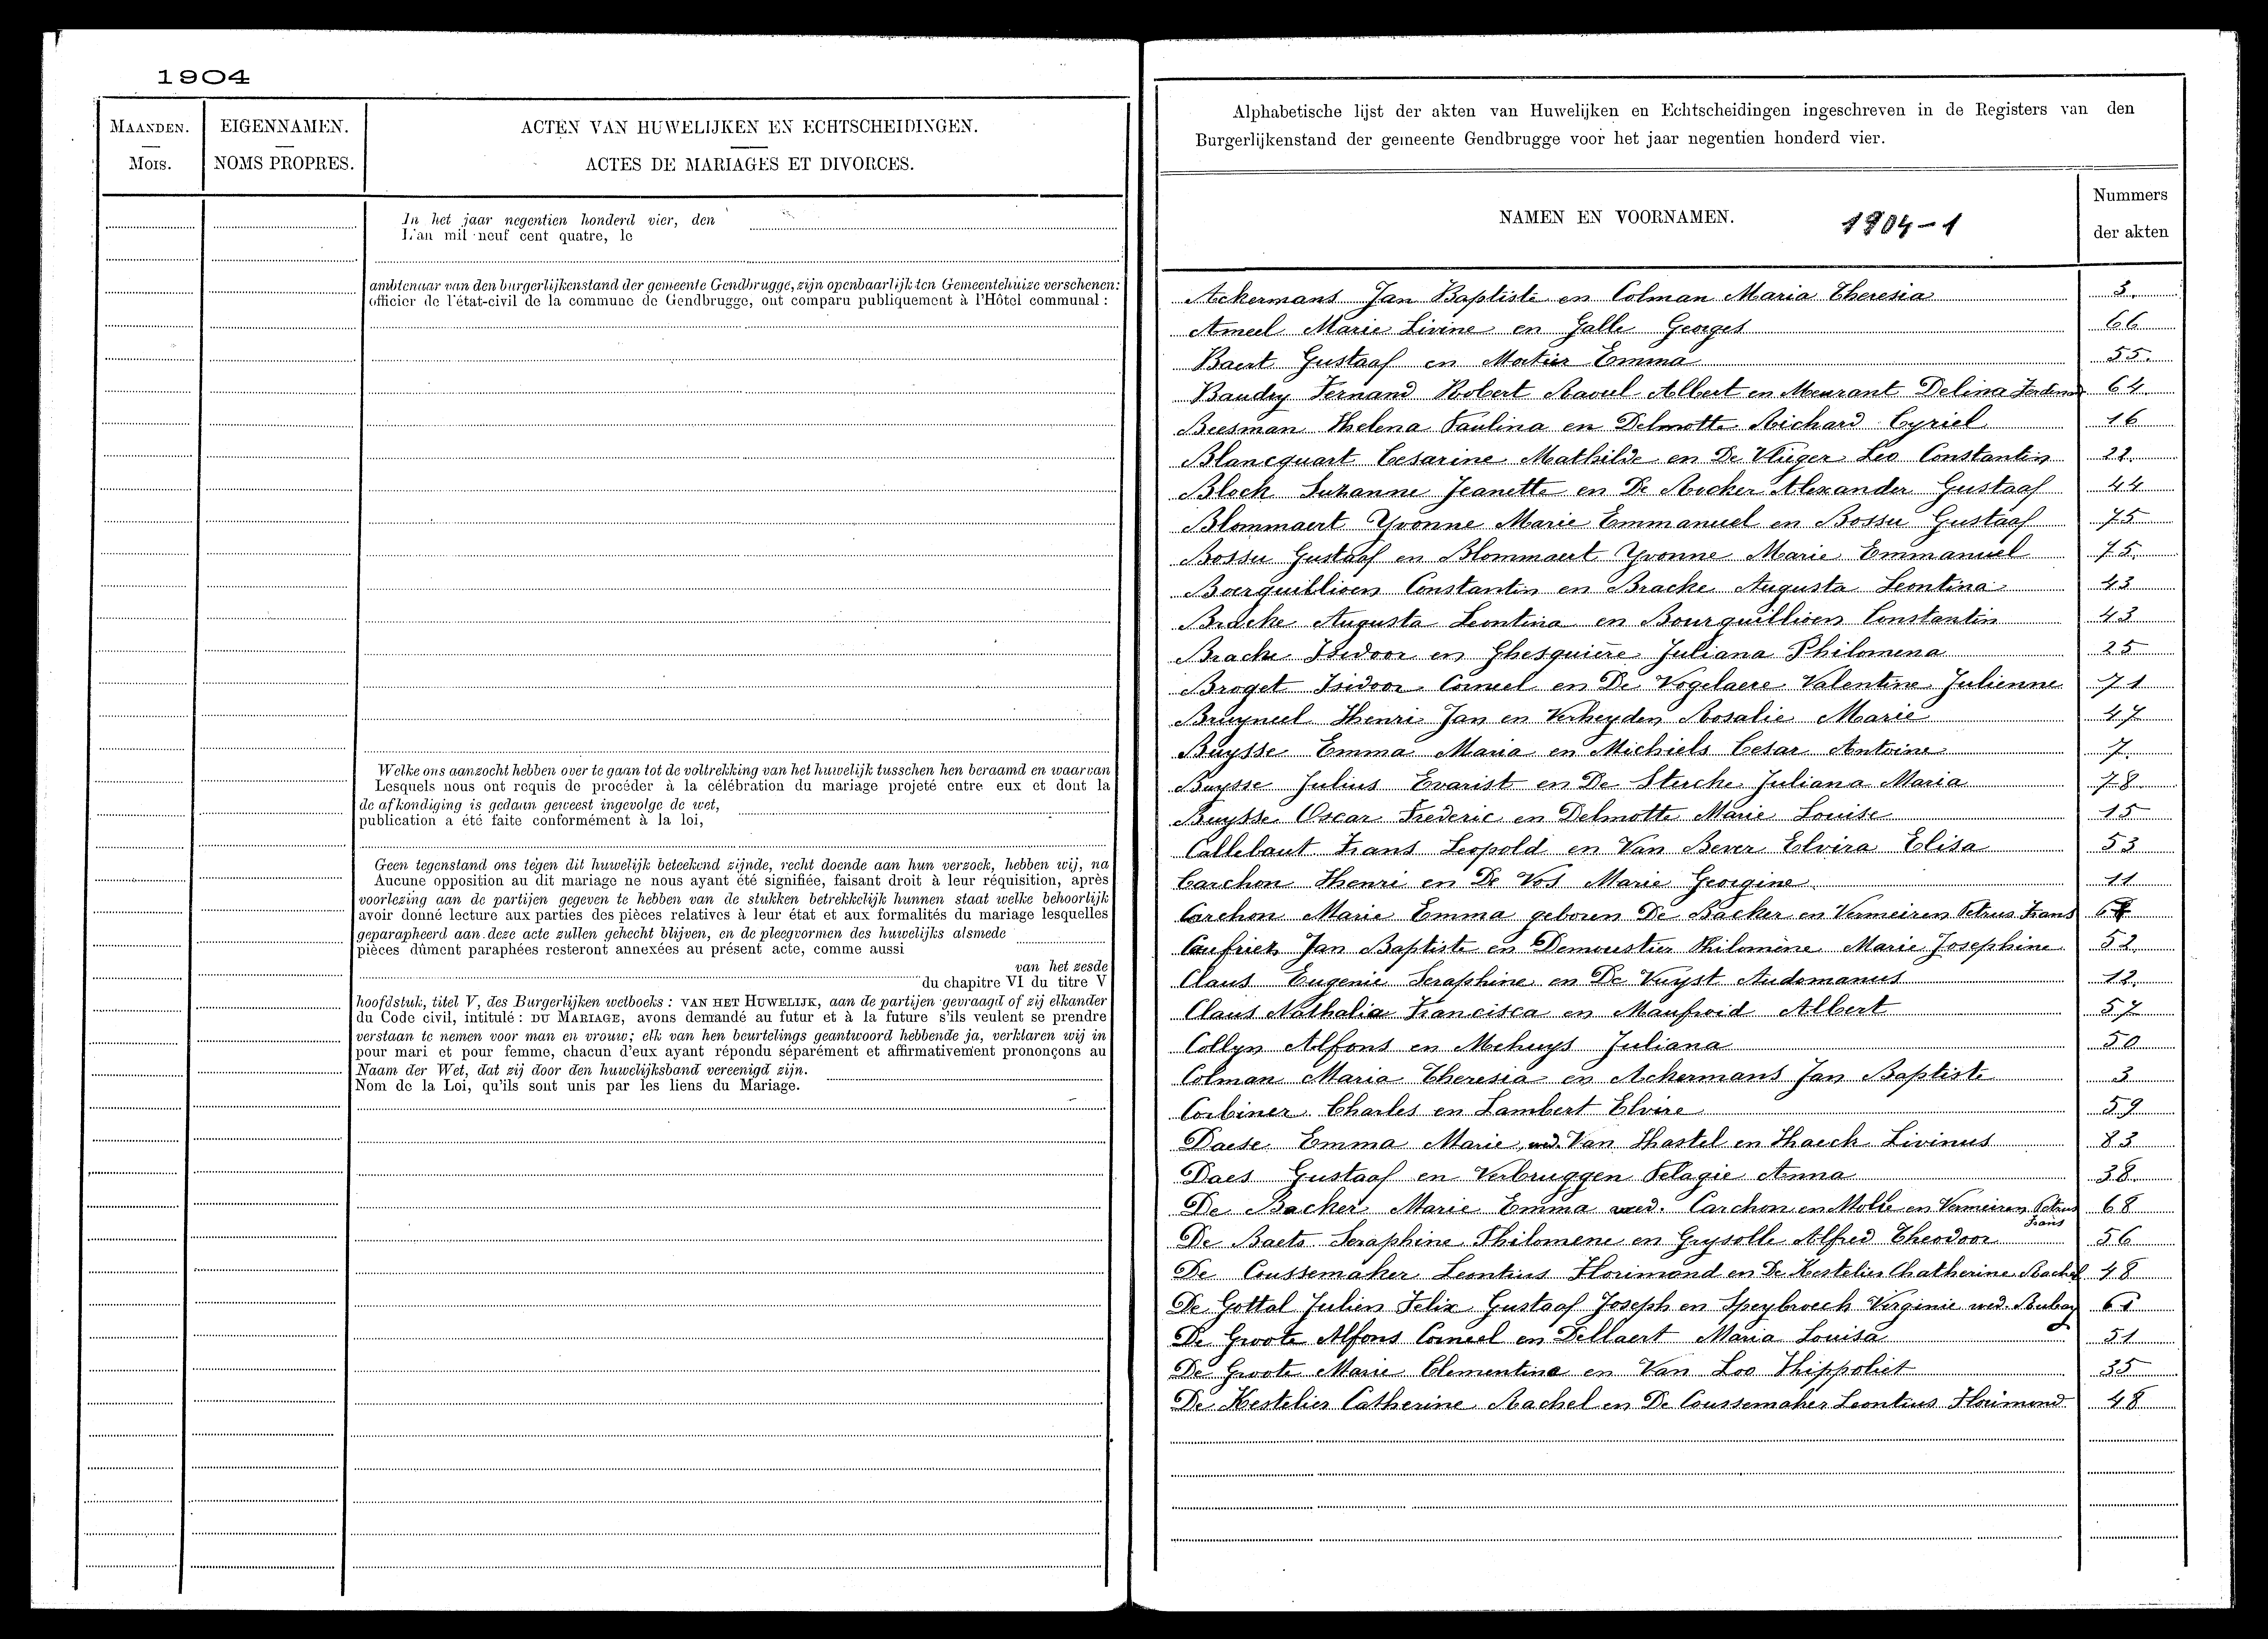 1904
MAANDEN.
Mois.
EIGENNAMEN.
NOMS PROPRES.
ACTEN VAN HUWELIJKEN EN ECHTSCHEIDINGEN.
ACTES DE MARIAGES ET DIVORCES.
In het jaar negentien honderd vier, den
L'an mil neuf cent quatre, le
ambtenaar van den burgerlijkenstand der gemeente Gendbrugge, zijn openbaarlijk ten Gemeentehuize verschenen:
officier de l'état-civil de la commune de Gendbrugge, ont comparu publiquement à l'Hôtel communal :
Welke ons aanzocht hebben over te gaan tot de voltrekking van het huwelijk tusschen hen beraamd en waarvan
Lesquels nous ont requis de procéder à la célébration du mariage projeté entre eux et dont la
de afkondiging is gedaan geweest ingevolge de wet,
publication a été faite conformément à la loi,
Geen tegenstand ons tegen dit huwelijk beteekend zijnde, recht doende aan hun verzoek, hebben wij, na
Aucune opposition au dit mariage ne nous ayant été signifiée, faisant droit à leur réquisition, après
voorlezing aan de partijen gegeven te hebben van de stukken betrekkelijk hunnen staat welke behoorlijk
avoir donné lecture aux parties des pièces relatives à leur état et aux formalités du mariage lesquelles
geparapheerd aan deze acte zullen gehecht blijven, en de pleegvormen des huwelijks alsmede
pièces dûment paraphées resteront annexées au présent acte, comme aussi
van het zesde
du chapitre VI du titre V
hoofdstuk, titel V, des Burgerlijken wetboeks : VAN HET HUWELIJK, aan de partijen gevraagd of zij elkander
du Code civil, intitulé : DU MARIAGE, avons demandé au futur et à la future s'ils veulent se prendre
verstaan te nemen voor man en vrouw; elk van hen beurtelings geantwoord hebbende ja, verklaren wij in
pour mari et pour femme, chacun d'eux ayant répondu séparément et affirmativement prononçons au
Naam der Wet, dat zij door den huwelijksband vereenigd zijn.
Nom de la Loi, qu'ils sont unis par les liens du Mariage.
Alphabetische lijst der akten van Huwelijken en Echtscheidingen ingeschreven in de Registers van den
Burgerlijkenstand der gemeente Gendbrugge voor het jaar negentien honderd vier.
NAMEN EN VOORNAMEN. 1904-1
Nummers
der akten
Ackermans Jan Baptiste en Colman Maria Theresia 3.
Ameel Marie Livine en Galle Georges 66
Baert Gustaaf en Mortier Emma 55.
Baudry Fernand Robert Raoul Albert en Meurant Delina 64
Beesman Helena Paulina en Delmotte Richard Cyriel 16
Blancquart Cesarine Mathilde en De Vlieger Leo Constantin 22.
Block Suzanne Jeanette en De Rocker Alexander Gustaaf 44
Blommaert Yvonne Marie Emmanuel en Bossu Gustaaf 75
Bossu Gustaaf en Blommaert Yvonne Marie Emmanuel 75.
Bourquillioen Constantin en Bracke Augusta Leontina 43
Bracke Augusta Leontina en Bourquillioen Constantin 43
Bracke Isidoor en Ghesquière Juliana Philomena 25
Broget Isidoor Corneel en De Vogelaere Valentine Julienne 71
Bruyneel Henri Jan en Verheyden Rosalie Marie 47
Buysse Emma Maria en Michiels Cesar Antoine 7.
Buysse Julius Evarist en De Sterche Juliana Maria 78
Buysse Oscar Frederic en Delmotte Marie Louise 15
Callebaut Frans Leopold en Van Bever Elvira Elisa 53
Carchon Henri en De Vos Marie Georgine 11
Carchon Marie Emma geboren De Backer en Vermeiren Petrus Frans
Caufriez Jan Baptiste en Demoustier Philomène Marie Josephine 52.
Claus Eugenie Seraphine en De Vuyst Audomanus 12.
Claus Nathalia Francisca en Maufroid Albert 57
Collyn Alfons en Mehuys Juliana 50
Colman Maria Theresia en Ackermans Jan Baptiste 3
Corbiner Charles en Lambert Elvire 59
Daese Emma Marie, wed. Van Hastel en Haeck Livinus 83
Daes Gustaaf en Verbruggen Pelagie Anna 38.
De Backer Marie Emma wed. Carchon en Molle en Vermeiren Petrus 68
Frans
De Baets Seraphine Philomene en Grysolle Alfred Theodoor 56
De Coussemaker Leontius Florimond en De Kestelier Chatherine Rachel 48
De Gottal Julien Felix Gustaaf Joseph en Speybroeck Virginie wed.
De Groote Alfons Corneel en Dellaert Maria Louisa 51
De Groote Marie Clementina en Van Loo Hippoliet 35
De Kestelier Catherine Rachel en De Coussemaker Leontius Florimond 48